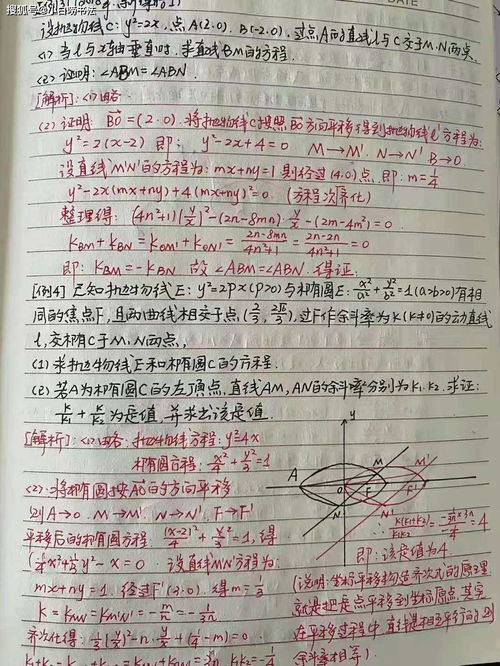 搜狐号@小白杨书法
设抛物线C:y²=2x,点A(2.0).B(-2.0),过点A的直线l与C交于M.N两点
<1>当l与x轴垂直时.求直线BM的方程.
<2>证明:∠ABM=∠ABN.
[解析]:<1>略.
(2)证明:BO=(2.0).将抛物线C按照BO方向平移得到抛物线C'方程为:
y²=2(x-2) 即: y²-2x+4=0 M→M'. N→N' B→O.
设直线M'N'的方程为:mx+ny=1则经过(4.0)点.即:m=1/4
y²-2x(mx+ny)+4(mx+ny)²=0. (方程次齐化)
整理得: (4n²+1)(y/x)²-(2n-8mn)·y/x-(2m-4m²)=0
KBM+KBN=KOM'+KON'=(2n-8mn)/(4n²+1)=(2n-2n)/(4n²+1)=0
即:KBM=-KBN 故∠ABM=∠ABN.得证.
[例4]已知抛物线E:y²=2px(p>0)与椭圆E:x²/a²+y²/b²=1(a>b>0)有相
同的焦点F,且两曲线相交于点(2/3,2√6/3),过F作斜率为k(k≠0)的动直线
l,交椭圆C于M.N两点,
(1)求抛物线E和椭圆C的方程.
(2)若A为椭圆C的左顶点,直线AM,AN的斜率分别为k₁.k₂.求证:
k/k₁+k/k₂为定值,并求出该定值.
[解析]<1>略:抛物线方程:y²=4x
椭圆方程:x²/4+y²/3=1
<2>将椭圆按AO的方向平移
则A→O. M→M'. N→N'. F→F'
平移后的椭圆方程:(x-2)²/4+y²/3=1,得
1/4x²+1/3y²-x=0 设直线M'N'方程为:
mx+ny=1.经过F'(3.0).得m=1/3
K=KMN=KM'N'=-m/n=-1/3n
齐次化得:1/3(y/x)²-n·y/x+(1/4-m)=0
y
A
O
F
M
M'
F'
N
N'
∴k(k₁+k₂)/k₁k₂=4
即:该定值为4.
(说明:坐标平移构造齐次式的原理
就是把定点平移到坐标原点.其实
在平移过程中直线是相互平行的.则
斜率相等)